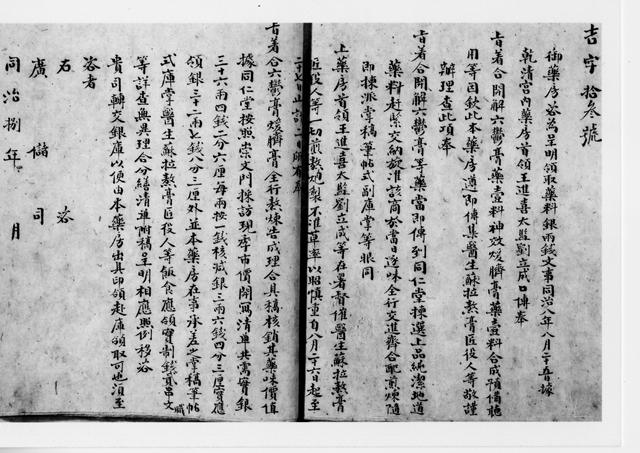 吉字拾叁號
御藥房咨為呈明領取藥料銀兩錢文事同治八年八月二十五日據
乾清宮內藥房首領王進喜太監劉立成口傳奉
旨著合開解六鬱膏藥壹料神效煖臍膏藥壹料合成預備施
用等因欽此本藥房遵即傳集醫生蘇拉熬膏匠役人等敬謹
辦理查此項奉
旨著合開解六鬱膏等藥當即傳到同仁堂揀選上品純潔地道
藥料赶緊交納故准該商於當日逐味全行交進齊合配煎煉隨
即揀派掌稿筆帖式副庫掌等眼同
上藥房首領王進喜太監劉立成等在署督催醫生蘇拉熬膏
匠役人等一切煎熬炮製不准草率以昭慎重自八月二十六日起至
二十七日止計二日
旨著合六鬱膏煖臍膏全行熬煉告成理合具稿核銷其藥味價值
據同仁堂按照崇文門採訪現存市價開寫清單共需實銀
三十六兩四錢二分六厘每兩按一錢核減銀三兩六錢四分三厘實應
領銀三十二兩七錢八分三厘外並本藥房在事承差之掌稿筆帖
式庫掌醫生蘇拉熬膏匠役人等飯食應領實制錢貳串文
等詳查無異理合分繕清單附稿呈明相應照例移咨
貴司轉交銀庫以便由本藥房出具印領赴庫領取可也須至
咨者
右咨
廣儲司
同治捌年 月